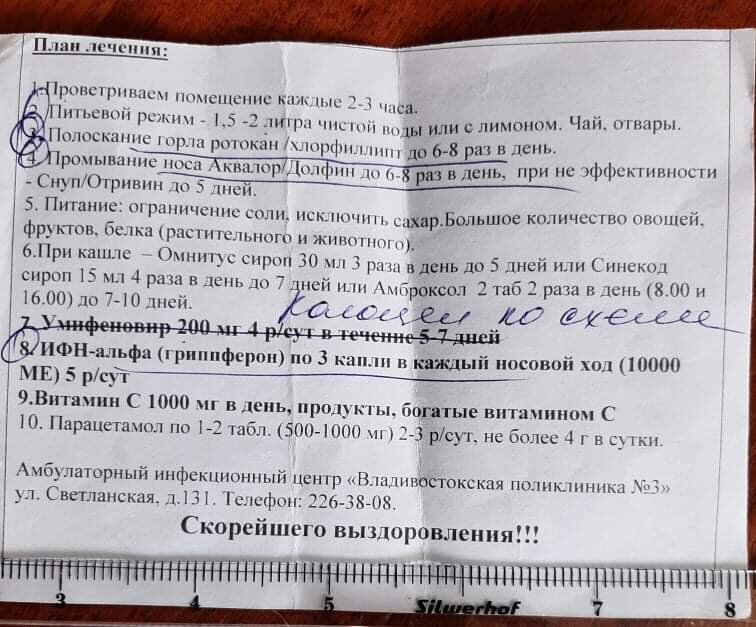 План лечения:
1.Проветриваем помещение каждые 2-3 часа.
2. Питьевой режим - 1,5 -2 литра чистой воды или с лимоном. Чай, отвары.
3. Полоскание горла ротокан /хлорфиллипт до 6-8 раз в день.
4. Промывание носа Аквалор/Долфин до 6-8 раз в день, при не эффективности
- Снуп/Отривин до 5 дней.
5. Питание: ограничение соли, исключить сахар.Большое количество овощей,
фруктов, белка (растительного и животного).
6.При кашле – Омнитус сироп 30 мл 3 раза в день до 5 дней или Синекод
сироп 15 мл 4 раза в день до 7 дней или Амброксол 2 таб 2 раза в день (8.00 и
16.00) до 7-10 дней.
Калоцел по схеме
7. Умифеновир 200 мг 4 р/сут в течение 5-7 дней
8. ИФН-альфа (гриппферон) по 3 капли в каждый носовой ход (10000
МЕ) 5 р/сут
9.Витамин С 1000 мг в день, продукты, богатые витамином С
10. Парацетамол по 1-2 табл. (500-1000 мг) 2-3 р/сут, не более 4 г в сутки.
Амбулаторный инфекционный центр «Владивостокская поликлиника №3»
ул. Светланская, д.131. Телефон: 226-38-08.
Скорейшего выздоровления!!!
3 4 5 Silwerhof 7 8